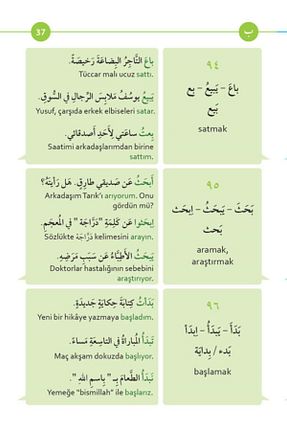 37
ب
٩٤
بَاعَ – يَبِيعُ – بِع
بَيع
satmak
بَاعَ التَّاجِرُ البِضَاعَةَ رَخِيصَةً.
Tüccar malı ucuz sattı.
يَبِيعُ يوسُفُ مَلابِسَ الرِّجالِ فِي السُّوقِ.
Yusuf, çarşıda erkek elbiseleri satar.
بِعتُ ساعَتي لِأَحَدِ أَصدقائي.
Saatimi arkadaşlarımdan birine
sattım.
٩٥
بَحَثَ – يَبْحَثُ – اِبحَث
بَحث
aramak,
araştırmak
أَبحَثُ عَن صَديقي طارِقٍ. هَل رَأَيتَهُ؟
Arkadaşım Tarık'ı arıyorum. Onu
gördün mü?
اِبحَثوا عَن كَلِمَةِ "دَرَّاجَة" فِي المُعجَمِ.
Sözlükte دَرَّاجَة kelimesini arayın.
يَبحَثُ الأَطِبَّاءُ عَن سَبَبِ مَرَضِهِ.
Doktorlar hastalığının sebebini
araştırıyor.
٩٦
بَدَأَ – يَبدَأُ – اِبدَأ
بَدء / بِدايَة
başlamak
بَدَأتُ كِتابَةَ حِكايَةٍ جَديدَةٍ.
Yeni bir hikâye yazmaya başladım.
تَبدَأُ المُباراةُ فِي التاسِعَةِ مَساءً.
Maç akşam dokuzda başlıyor.
نَبدَأُ الطَّعامَ بِـ " بِاسمِ اللهِ ".
Yemeğe "bismillah" ile başlarız.